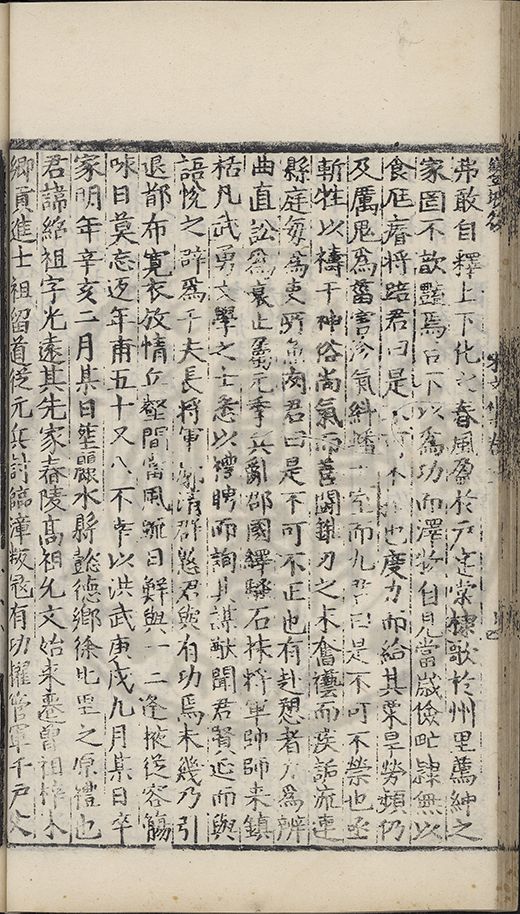 弗敢自釋上下化之春風盈於戶庭棠棣歌於州里薦紳之
家罔不歆豔焉臣下以爲功而澤皆自見當歲儉甿隸無以
食尫瘠將踣君曰是不可不也度力而給其粟早勞頓仍
及厲鬼爲菑害沴氣糾蟠一室而九君曰是不可不禜也亟
斬牲以禱于神俗尚氣而善鬪錐刃之末奮襼而疾詬流連
縣庭每爲吏所魚肉君曰是不可不正也有赴愬者力爲辨
曲直訟爲衰止屬元季兵亂郡國繹騷石抹將軍帥師來鎮
栝凡武勇文學之士悉以禮聘而詢其謀猷聞君賢延而與
語悅之辟爲千夫長將軍肅清群慝君與有功焉未幾乃引
退部布寬衣放情丘壑間當風疏日鮮與一二逢掖從容觴
咏日莫忘返年甫五十又八不幸以洪武庚戌九月某日卒
家明年辛亥二月某日塟麗水縣懿德鄉徐山里之原禮也
君諱紹祖字光遠其先家舂陵高祖允文始來遷曾祖梓木
鄉貢進士祖留道從元兵討臨漳叛寇有功擢管軍千戶父